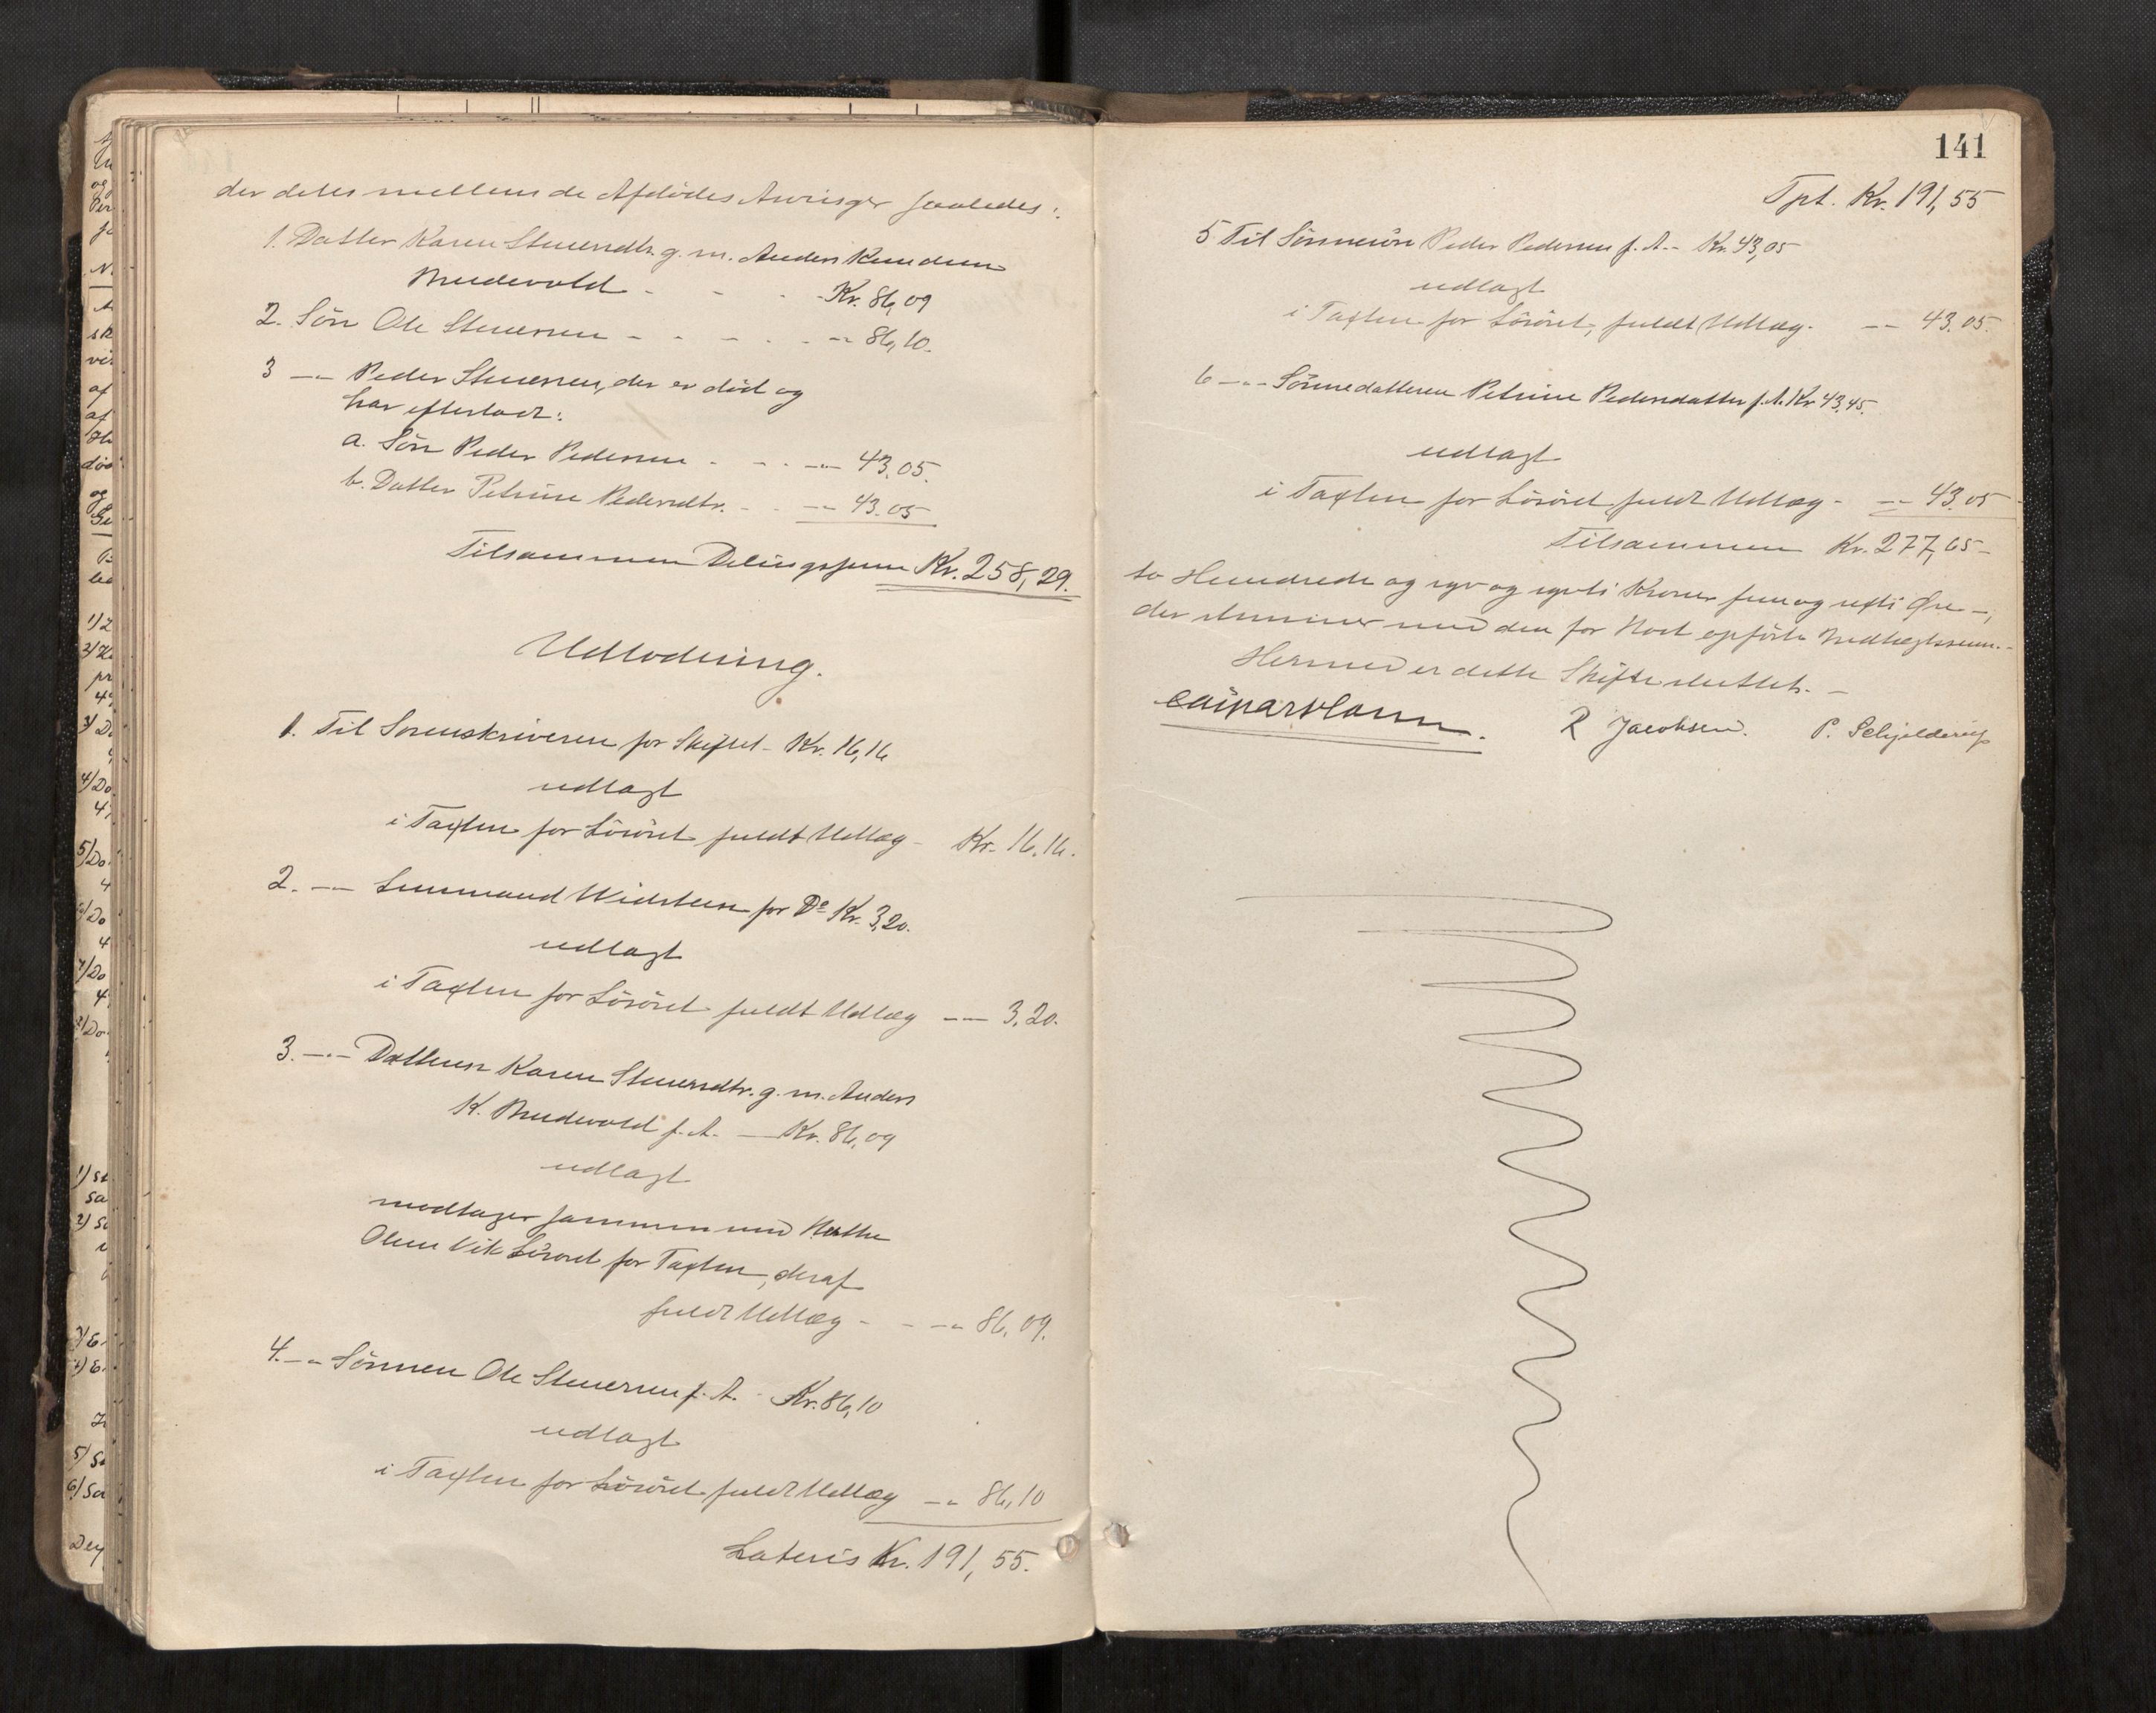 der deles mellem de Afdødes Arvinger saaledes:
1. Datter Karen Steuersdtr. g. m. Anders Knudsen
Brudevold - - - Kr. 86,09
2. Sön Ole Steuersen - - - - - „ 86,10.
3 -„- Peder Steuersen, der er död og
har efterladt:
a. Sön Peder Pedersen - - - „ 43,05.
b. Datter Petrine Pedersdtr. - - „ 43.05
Tilsammen Delingssum Kr. 258,29.
Udlodning.
1. Til Sorenskriveren for Skiftet - Kr. 16,16
udlagt
i Taxten for Lösöret fuldt Udlæg - Kr. 16,16.
2. -„- Lensmand Widsteen for Do Kr. 3,20.
udlagt
i Taxten for Lösöret fuldt Udlæg -„- 3,20.
3. -„- Datteren Karen Steuersdtr. g. m. Anders
K. Brudevold f. A. - Kr. 86,09
udlagt
modtager sammen med
Olsen Vik Lösöret for Taxten, deraf
fuldt Udlæg - - -„ 86,09.
4. -„ Sönnen Ole Steuersen f. A. - Kr. 86,10
udlagt
i Taxten for Lösöret fuldt Udlæg -„ 86,10
Lateris Kr. 191,55.
141
Tpt. Kr. 191,55
5 Til Sönnesön Peder Pedersen f. A. - Kr. 43,05
udlagt
i Taxten for Lösöret, fuldt Udlæg - -„ 43.05.
6 -„- Sönnedatteren Petrine Pedersdatter f. A. Kr 43,45.
udlagt
i Taxten for Lösöret fuldt Udlæg - -„ 43.05
Tilsammen Kr. 277,65 -
to Hundrede og syv og sytti Kroner fem og sexti Øre -,
der stemmer med den for Boet opförte Indtægtssum. -
Hermed er dette Skifte sluttet. -
R Jacobsen. P. Schjelderup